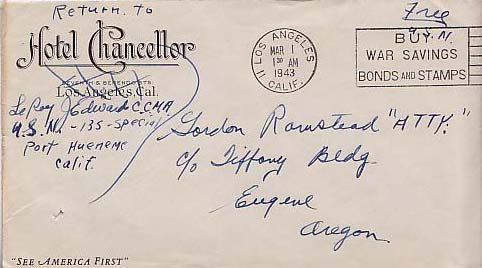 Return to
Hotel Chancellor
SEVENTH & BERENDO STS.
Los Angeles, Cal.
LeRoy J. Edward C.C.M.A.
U.S.N. - 135 - Special
Port Hueneme
Calif.
LOS ANGELES
11
MAR 1
1 30 AM
1943
CALIF.
Free
U.S.N.
BUY
WAR SAVINGS
BONDS AND STAMPS
Gordon Ramstead "ATTY."
c/o Tiffany Bldg.
Eugene
Oregon
"SEE AMERICA FIRST"